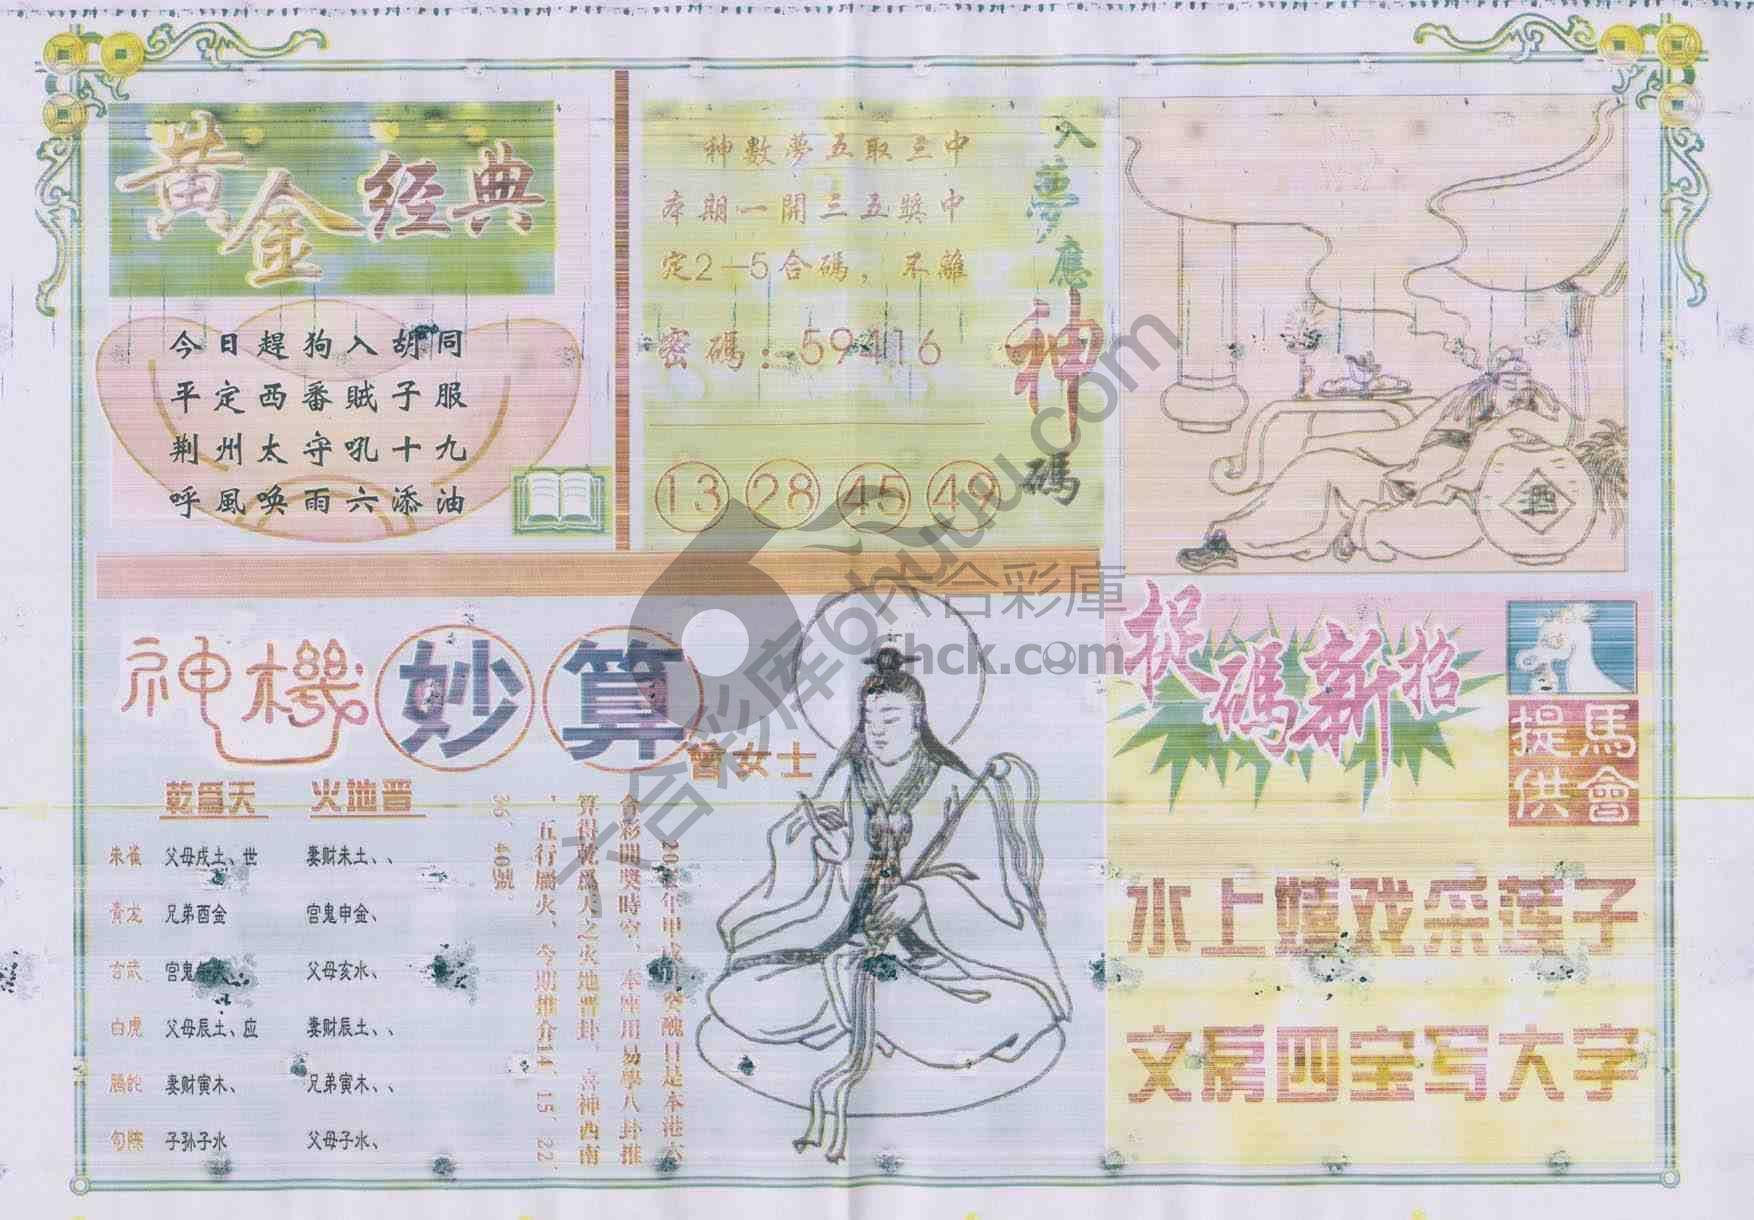 黄金经典
今日趕狗入胡同
平定西番賊子服
荆州太守吼十九
呼風喚雨六添油
入夢應神碼
神數夢五取三中
本期一開三五獎中
定2—5合碼，不離
密碼：59416
13 28 45 49
酒
神機妙算
曾女士
乾爲天 火地晋
朱雀 父母戌土、世 妻财未土、、
青龙 兄弟酉金 官鬼申金、
玄武 官鬼 父母亥水、
白虎 父母辰土、应 妻财辰土、、
螣蛇 妻财寅木、 兄弟寅木、、
勾陈 子孙子水 父母子水、
年甲戌月癸醜日是本港六
合彩開獎時空、本座用易學八卦推
算得乾爲天之火地晋卦、喜神西南
，五行屬火、今期推介14，15，22，
36，40號。
捉碼新招
馬會提供
水上嬉戏采莲子
文房四宝写大字
六合彩库6huuu.com
六合彩庫
hck.com